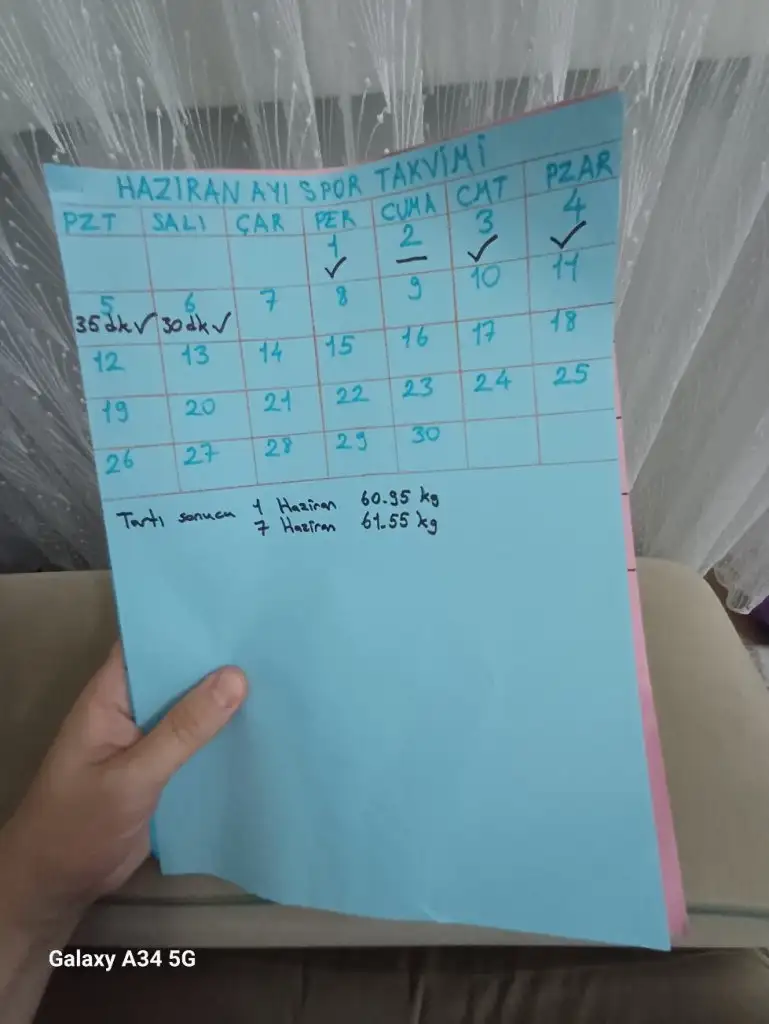 HAZIRAN AYI SPOR TAKVİMİ
PZT SALI ÇAR PER CUMA CMT PZAR
1 2 3 4
✓ — ✓ ✓
5 6 7 8 9 10 11
35 dk ✓ 30 dk ✓
12 13 14 15 16 17 18
19 20 21 22 23 24 25
26 27 28 29 30
Tartı sonucu 1 Haziran 60.95 kg
7 Haziran 61.55 kg
Galaxy A34 5G